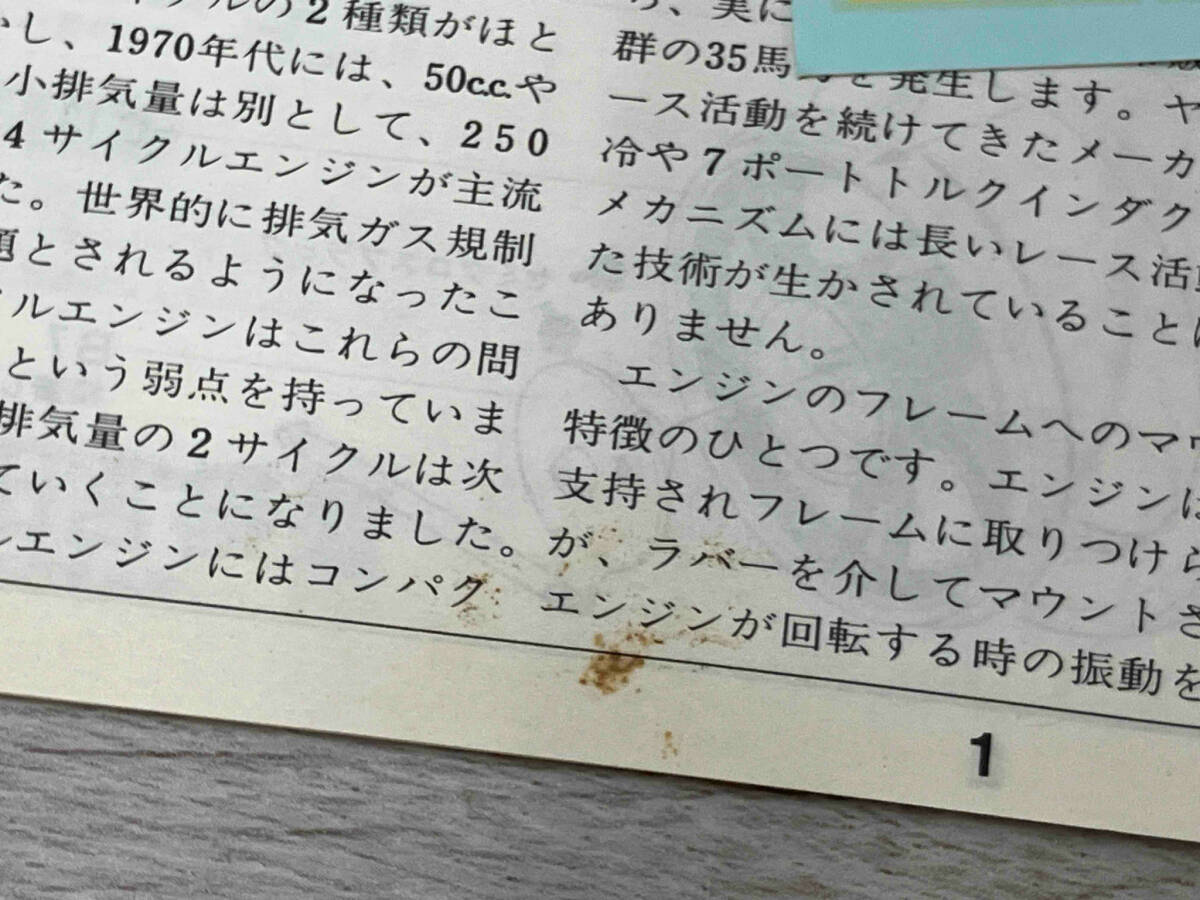 イクルの2種類がほと
かし、1970年代には、50c.c.や
小排気量は別として、250
4サイクルエンジンが主流
た。世界的に排気ガス規制
題とされるようになったこ
クルエンジンはこれらの問
という弱点を持っていま
排気量の2サイクルは次
ていくことになりました。
ルエンジンにはコンパク
、実に
群の35馬力を発生します。ヤ
ース活動を続けてきたメーカ
冷や7ポートトルクインダク
メカニズムには長いレース活動
た技術が生かされていることは
ありません。
エンジンのフレームへのマウ
特徴のひとつです。エンジンは
支持されフレームに取りつけら
が、ラバーを介してマウントさ
エンジンが回転する時の振動を
1